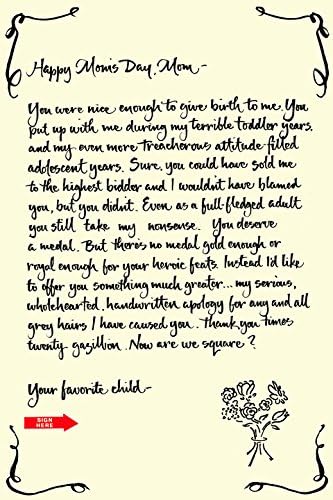 Happy Mom's Day, Mom-
You were nice enough to give birth to me. You
put up with me during my terrible toddler years,
and my even more treacherous attitude-filled
adolescent years. Sure, you could have sold me
to the highest bidder and I wouldn't have blamed
you, but you didn't. Even as a full-fledged adult
you still take my nonsense. You deserve
a medal. But there's no medal gold enough or
royal enough for your heroic feats. Instead I'd like
to offer you something much greater... my serious,
wholehearted, handwritten apology for any and all
grey hairs I have caused you. Thank you times
twenty-gasillion. Now are we square?
Your favorite child-
SIGN
HERE